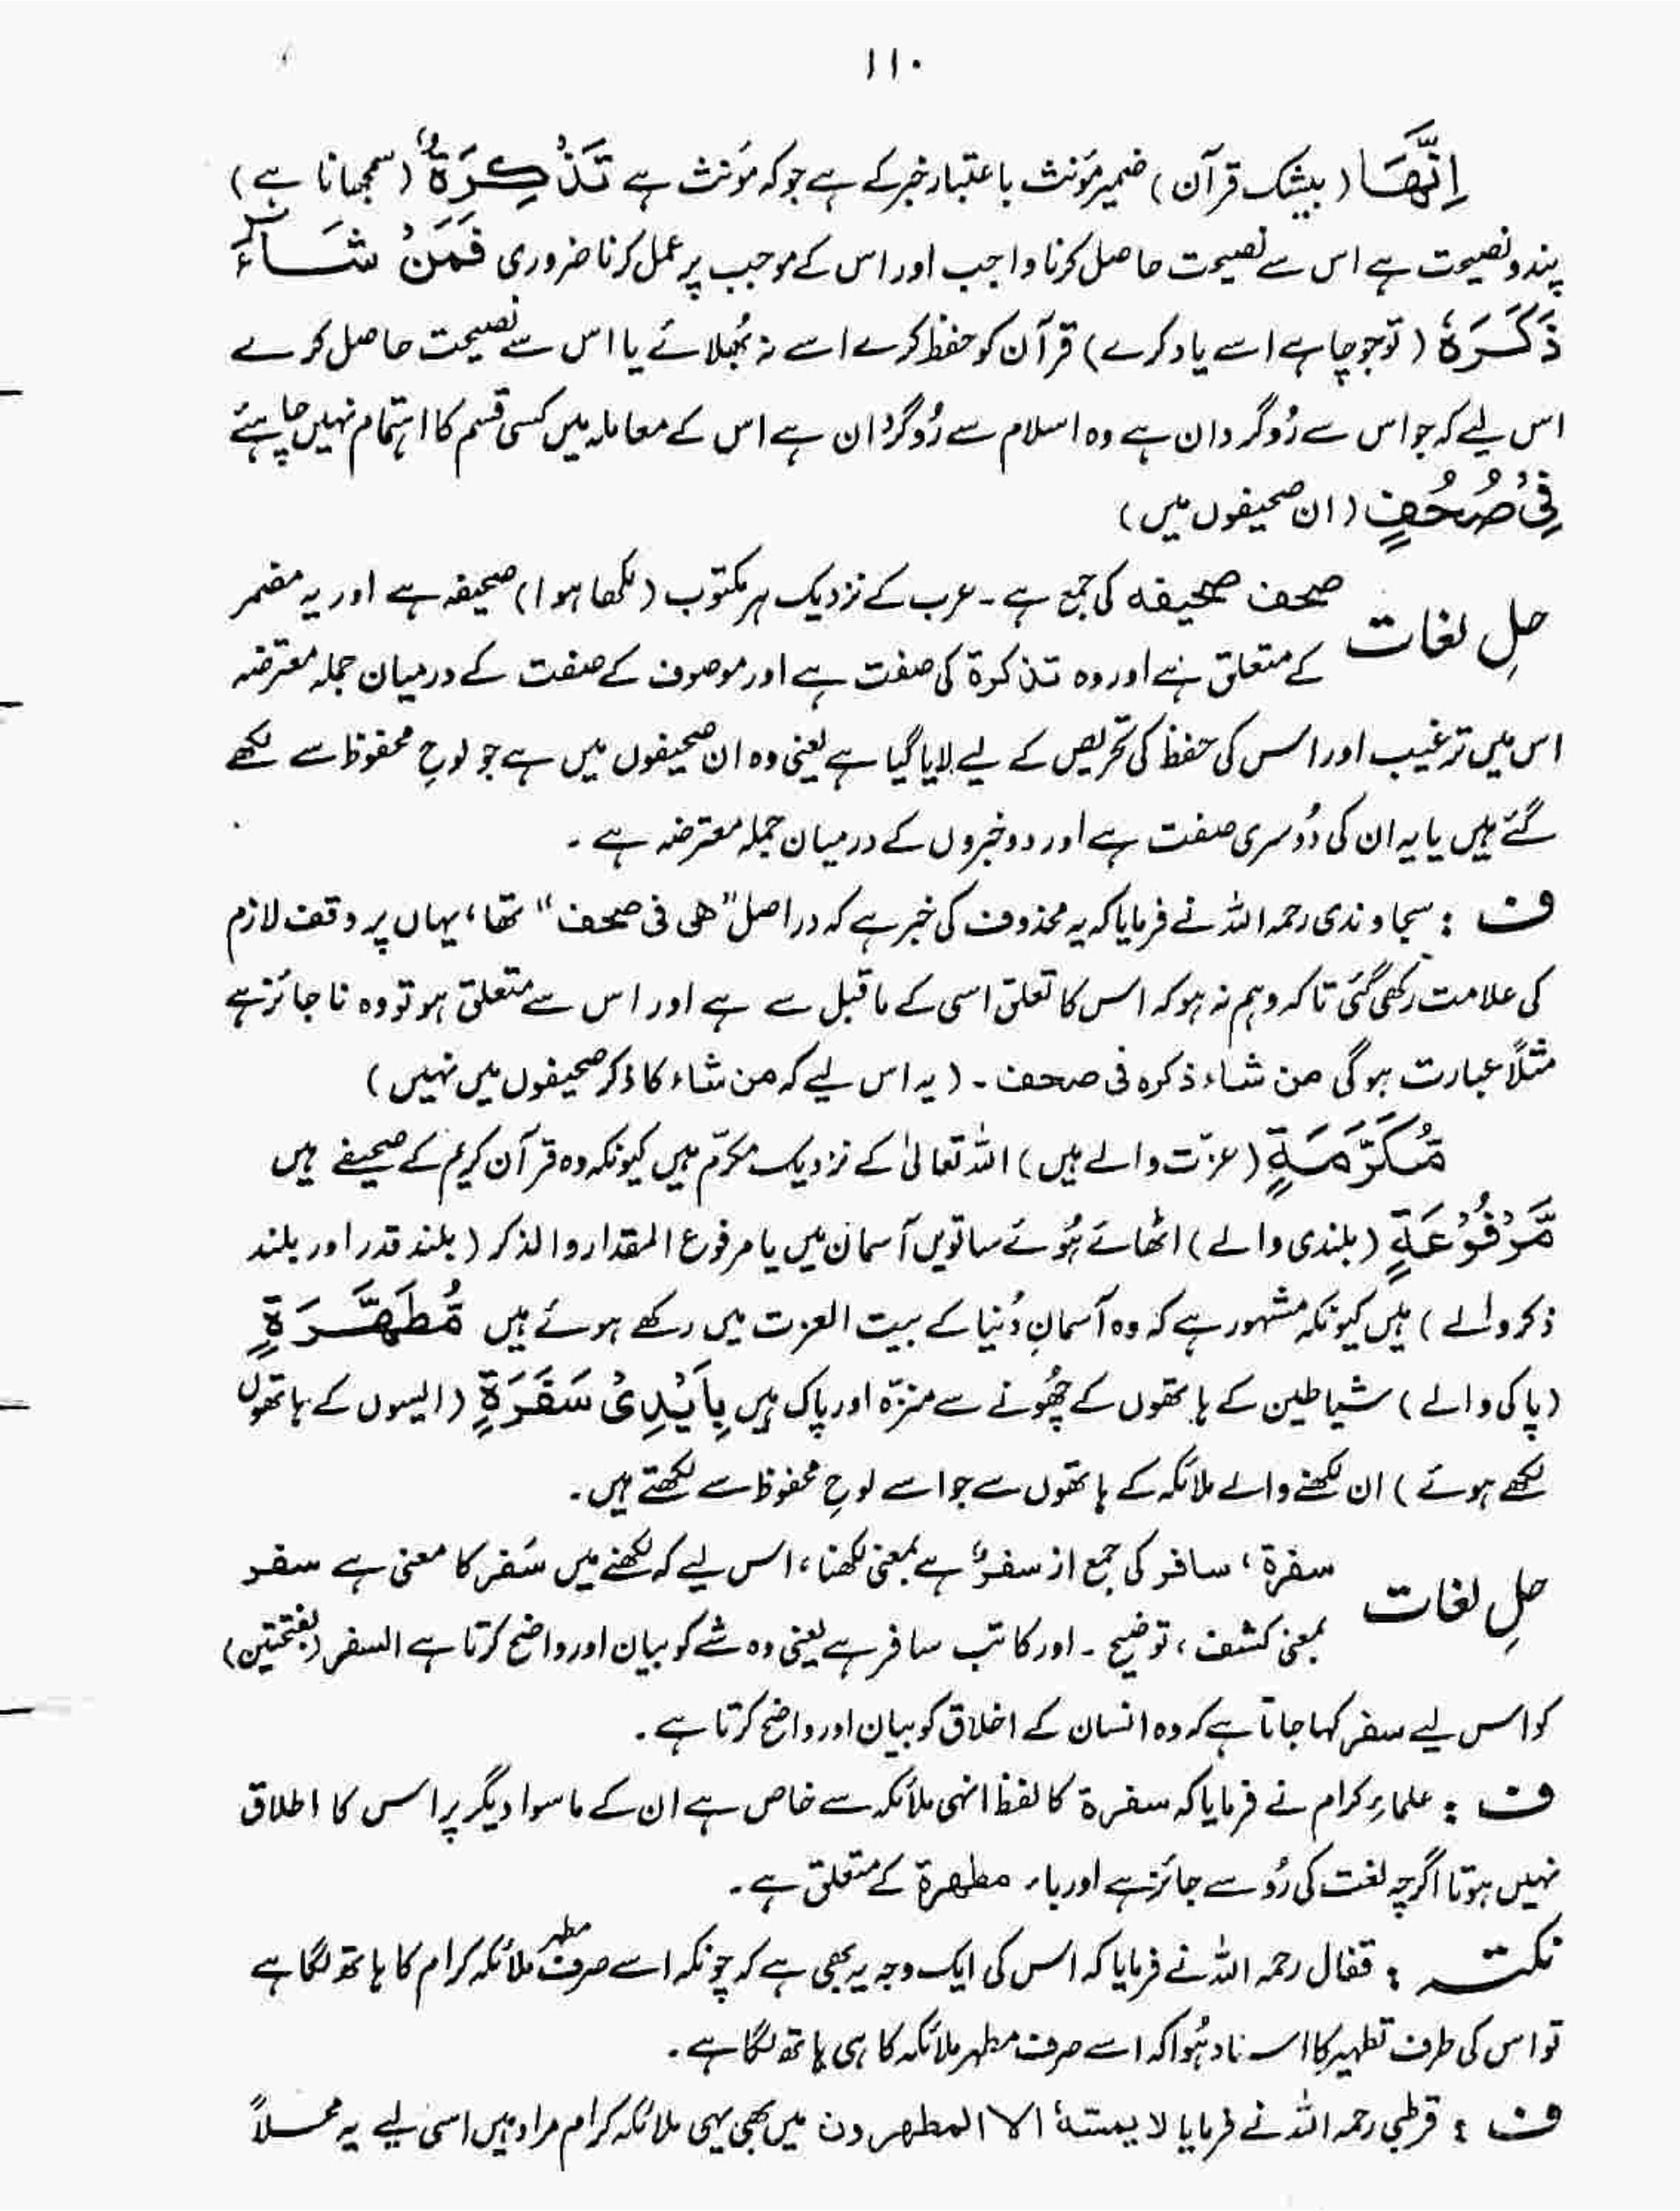 ۱۱۰
اِنَّھَا (بیشک قرآن) ضمیر مؤنث باعتبار خبر کے ہے جو کہ مؤنث ہے تَذْکِرَةٌ (سمجھانا ہے)
پند و نصیحت ہے اس سے نصیحت حاصل کرنا واجب اور اس کے موجب پر عمل کرنا ضروری فَمَنْ شَآءَ
ذَکَرَہٗ (تو جو چاہے اسے یاد کرے) قرآن کو حفظ کرے اسے نہ بُھلائے یا اس سے نصیحت حاصل کرے
اس لیے کہ جو اس سے رُوگردان ہے وہ اسلام سے رُوگردان ہے اس کے معاملہ میں کسی قسم کا اہتمام نہیں چاہئے
فِیْ صُحُفٍ (ان صحیفوں میں)
حلِ لغات صحف صحیفه کی جمع ہے ۔ عرب کے نزدیک ہر مکتوب (لکھا ہوا) صحیفہ ہے اور یہ مضمر
کے متعلق ہے اور وہ تذکرة کی صفت ہے اور موصوف کے صفت کے درمیان جملہ معترضہ
اس میں ترغیب اور اس کی حفظ کی تحریص کے لیے لایا گیا ہے یعنی وہ ان صحیفوں میں ہے جو لوحِ محفوظ سے لکھے
گئے ہیں یا یہ ان کی دُوسری صفت ہے اور دو خبروں کے درمیان جملہ معترضہ ہے ۔
ف : سجاوندی رحمہ اللہ نے فرمایا کہ یہ محذوف کی خبر ہے کہ دراصل "ھی فی صحف" تھا، یہاں پر وقف لازم
کی علامت رکھی گئی تاکہ وہم نہ ہو کہ اس کا تعلق اسی کے ماقبل سے ہے اور اس سے متعلق ہو تو وہ ناجائز ہے
مثلاً عبارت ہوگی من شاء ذکرہ فی صحف ۔ (یہ اس لیے کہ من شاء کا ذکر صحیفوں میں نہیں)
مُّکَرَّمَةٍ (عزّت والے ہیں) اللہ تعالیٰ کے نزدیک مکرّم ہیں کیونکہ وہ قرآن کریم کے صحیفے ہیں
مَّرْفُوْعَةٍ (بلندی والے) اٹھائے ہُوئے ساتویں آسمان میں یا مرفوع المقدار والذکر (بلند قدر اور بلند
ذکر والے) ہیں کیونکہ مشہور ہے کہ وہ آسمانِ دُنیا کے بیت العزت میں رکھے ہوئے ہیں مُّطَھَّرَةٍ
(پاکی والے) شیاطین کے ہاتھوں کے چُھونے سے منزّہ اور پاک ہیں بِاَیْدِیْ سَفَرَةٍ (ایسوں کے ہاتھوں
لکھے ہوئے) ان لکھنے والے ملائکہ کے ہاتھوں سے جو اسے لوحِ محفوظ سے لکھتے ہیں۔
حلِ لغات سفرة، سافر کی جمع از سفرٌ ہے بمعنی لکھنا، اس لیے کہ لکھنے میں سَفر کا معنی ہے سفر
بمعنی کشف، توضیح ۔ اور کاتب سافر ہے یعنی وہ شے کو بیان اور واضح کرتا ہے السفر (بفتحتین)
کو اس لیے سفر کہا جاتا ہے کہ وہ انسان کے اخلاق کو بیان اور واضح کرتا ہے ۔
ف : علماءِ کرام نے فرمایا کہ سفرة کا لفظ انہی ملائکہ سے خاص ہے ان کے ماسوا دیگر پر اس کا اطلاق
نہیں ہوتا اگرچہ لغت کی رُو سے جائز ہے اور باء مطھرة کے متعلق ہے ۔
نکتہ : قفال رحمہ اللہ نے فرمایا کہ اس کی ایک وجہ یہ بھی ہے کہ چونکہ اسے صرف مطہر ملائکہ کرام کا ہاتھ لگا ہے
تو اس کی طرف تطہیر کا اسناد ہُوا کہ اسے صرف مطہر ملائکہ کا ہی ہاتھ لگا ہے ۔
ف : قرطبی رحمہ اللہ نے فرمایا لا یمسّہٗ الا المطھرون میں بھی یہی ملائکہ کرام مراد ہیں اسی لیے یہ محلاً